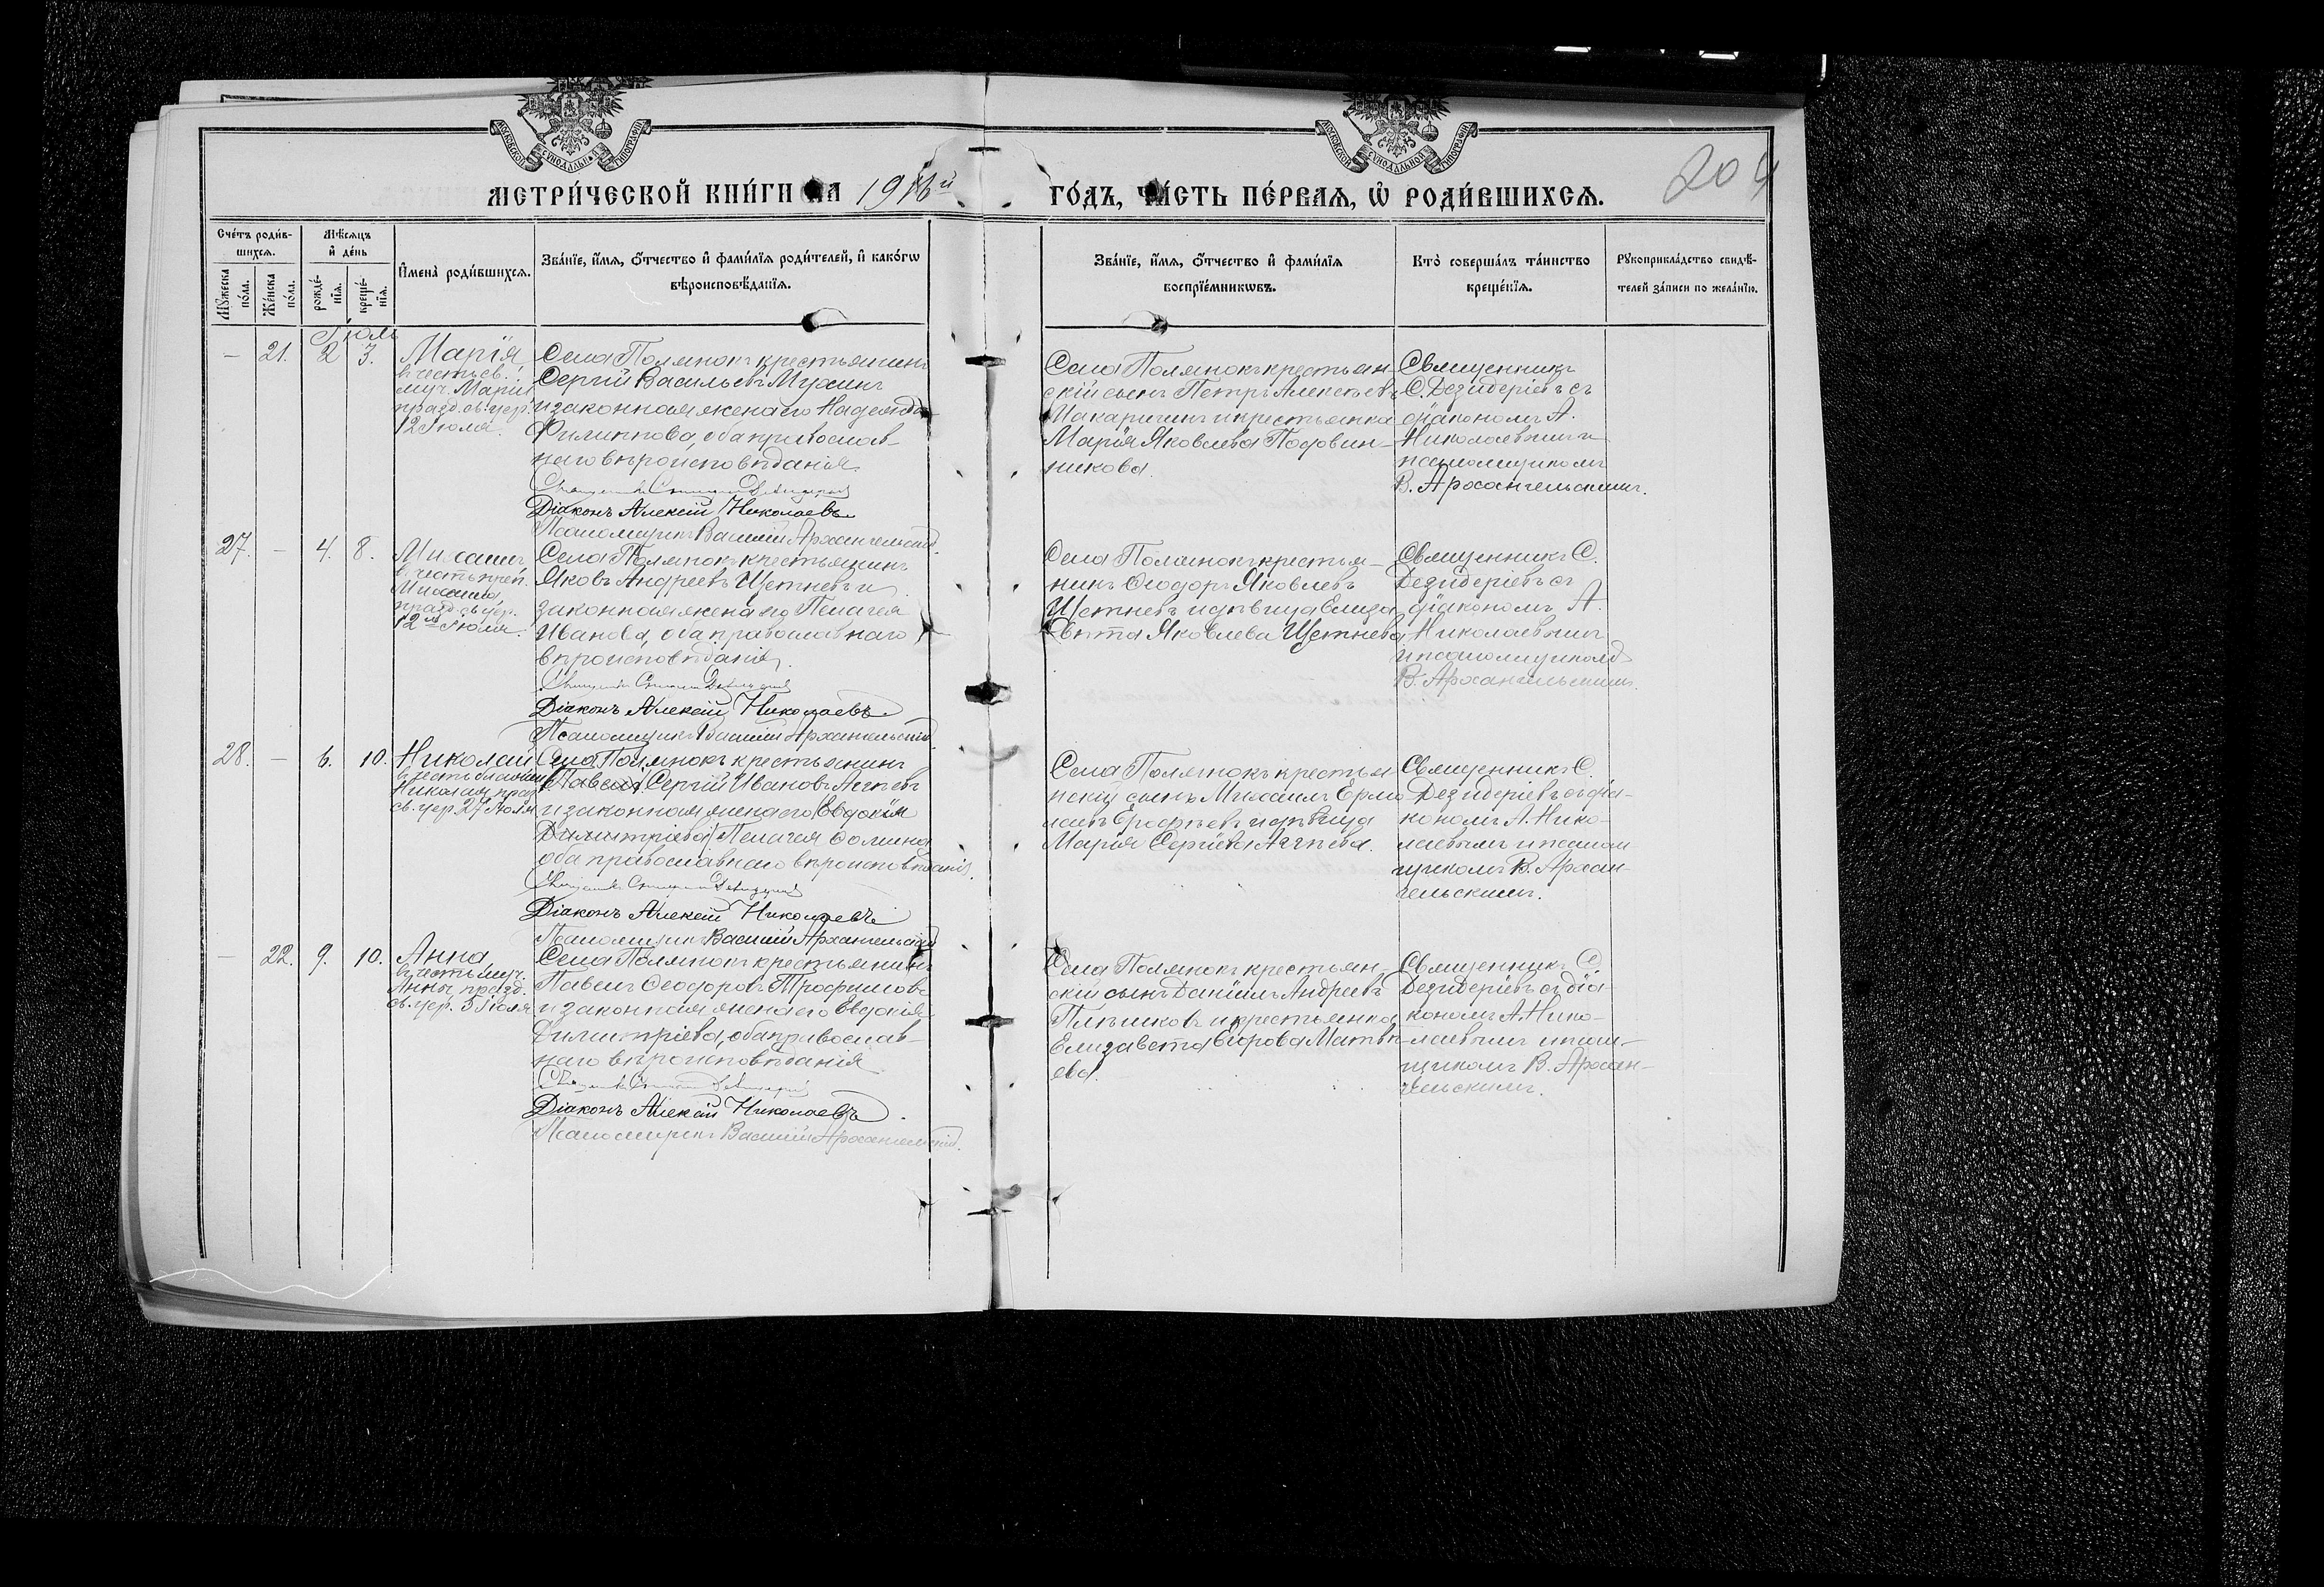 МОСКОВСКОЙ СѴНОДАЛЬНОЙ ТИПОГРАФІИ
МОСКОВСКОЙ СѴНОДАЛЬНОЙ ТИПОГРАФІИ
МЕТРИ́ЧЕСКОЙ КНИ́ГИ НА 1916й
ГО́ДЪ, ЧА́СТЬ ПЕ́РВАЯ, Ѡ РОДИ́ВШИХСЯ.
204
Сче́тъ роди́в-
шихся.
Мѣ́сяцъ
и де́нь
Му́жеска
по́ла.
Же́нска
по́ла.
рожде́-
нїя.
креще́-
нїя.
Имена̀ роди́вшихся.
Зва́нїе, и́мя, ѻ́тчество и фами́лїя роди́телей, и како́гѡ
вѣроисповѣ́данїя.
Зва́нїе, и́мя, ѻ́тчество и фами́лїя
воспрїе́мникѡвъ.
Кто̀ соверша́лъ та́инство
креще́нїя.
Рукоприкла́дство свидѣ́-
телей за́писи по жела́нїю.
Іюль
— 21. 2 3.
Марія
въ честь св.
муч. Маріи
празд. св. цер.
12 Іюля.
Села Полянокъ крестьянинъ
Сергій Васильевъ Мухинъ
и законная жена его Надежда
Филиппова, оба православ-
наго вѣроисповѣданія.
Діаконъ Алексій Николаевъ
Псаломщикъ Василій Архангельскій.
Села Полянокъ крестьян
скій сынъ Петръ Алексѣевъ
Макаричинъ и крестьянка
Марія Яковлева Половин-
никова.
Священникъ
С. Дезидеріевъ съ
діакономъ А.
Николаевымъ и
псаломщикомъ
В. Архангельскимъ.
27. — 4. 8.
Михаилъ
въ честь преп.
Михаила,
празд. св. цер.
12го Іюля.
Села Полянокъ крестьянинъ
Яковъ Андреевъ Щетневъ и
законная жена его Пелагея
Иванова, оба православнаго
вѣроисповѣданія.
Діаконъ Алексій Николаевъ
Псаломщикъ Василій Архангельскій.
Села Полянокъ крестья-
нинъ Ѳеодоръ Яковлевъ
Щетневъ и дѣвица Елиза
вѣта Яковлева Щетнева
Священникъ С.
Дезидеріевъ съ
діакономъ А.
Николаевымъ
и псаломщикомъ
В. Архангельскимъ.
28. — 6. 10.
Николай
Николая празд
св. цер. 27 Іюля
Села Полянокъ крестьянинъ
(Павелъ) Сергій Ивановъ Агѣевъ
и законная жена его (Евдокія
Димитріева) Пелагея Ѳомина
оба православнаго вѣроисповѣданія.
Діаконъ Алексій Николаевъ
Псаломщикъ Василій Архангельскій
Села Полянокъ крестья
нскій сынъ Михаилъ Ермо
лаевъ Ерофѣевъ и дѣвица
Марія Сергіева Агѣева.
Священникъ С.
Дезидеріевъ съ діа-
кономъ А. Нико-
лаевымъ и псалом
щикомъ В. Архан-
гельскимъ.
— 22. 9. 10.
Анна
въ честь муч.
Анны празд.
св. цер. 5 Іюля
Села Полянокъ крестьянинъ
Павелъ Ѳеодоровъ Трофимовъ
и законная жена его Евдокія
Димитріева, оба православ-
наго вѣроисповѣданія.
Діаконъ Алексій Николаевъ.
Псаломщикъ Василій Архангельскій.
Села Полянокъ крестьян
скій сынъ Даніилъ Андреевъ
и крестьянка
Елизавета Егорова Матвѣ
ева.
Священникъ С.
Дезидеріевъ съ діа
кономъ А. Нико-
лаевымъ и псалом-
щикомъ В. Архан-
гельскимъ.